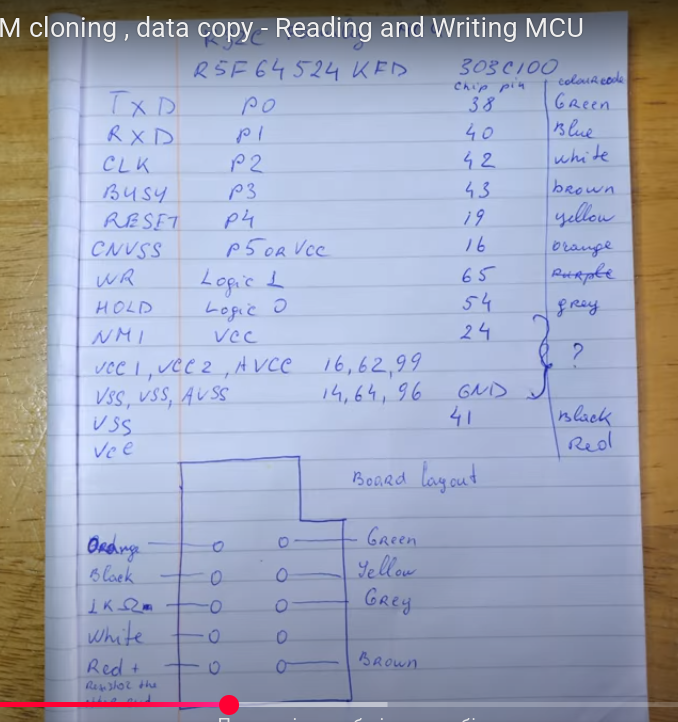 M cloning , data copy - Reading and Writing MCU
R5F64524KFD 303C100
chip pin colourcode
TXD P0 38 Green
RXD P1 40 Blue
CLK P2 42 white
BUSY P3 43 brown
RESET P4 19 yellow
CNVSS P5 OR VCC 16 orange
WR Logic 1 65 purple
HOLD Logic 0 54 grey
NMI VCC 24
VCC1, VCC2, AVCC 16,62,99 ?
VSS, VSS, AVSS 14,64,96 GND
VSS 41 Black
VCC Red
Board layout
Orange Green
Black Yellow
1KΩ Grey
White
Red + Brown
Resistor the